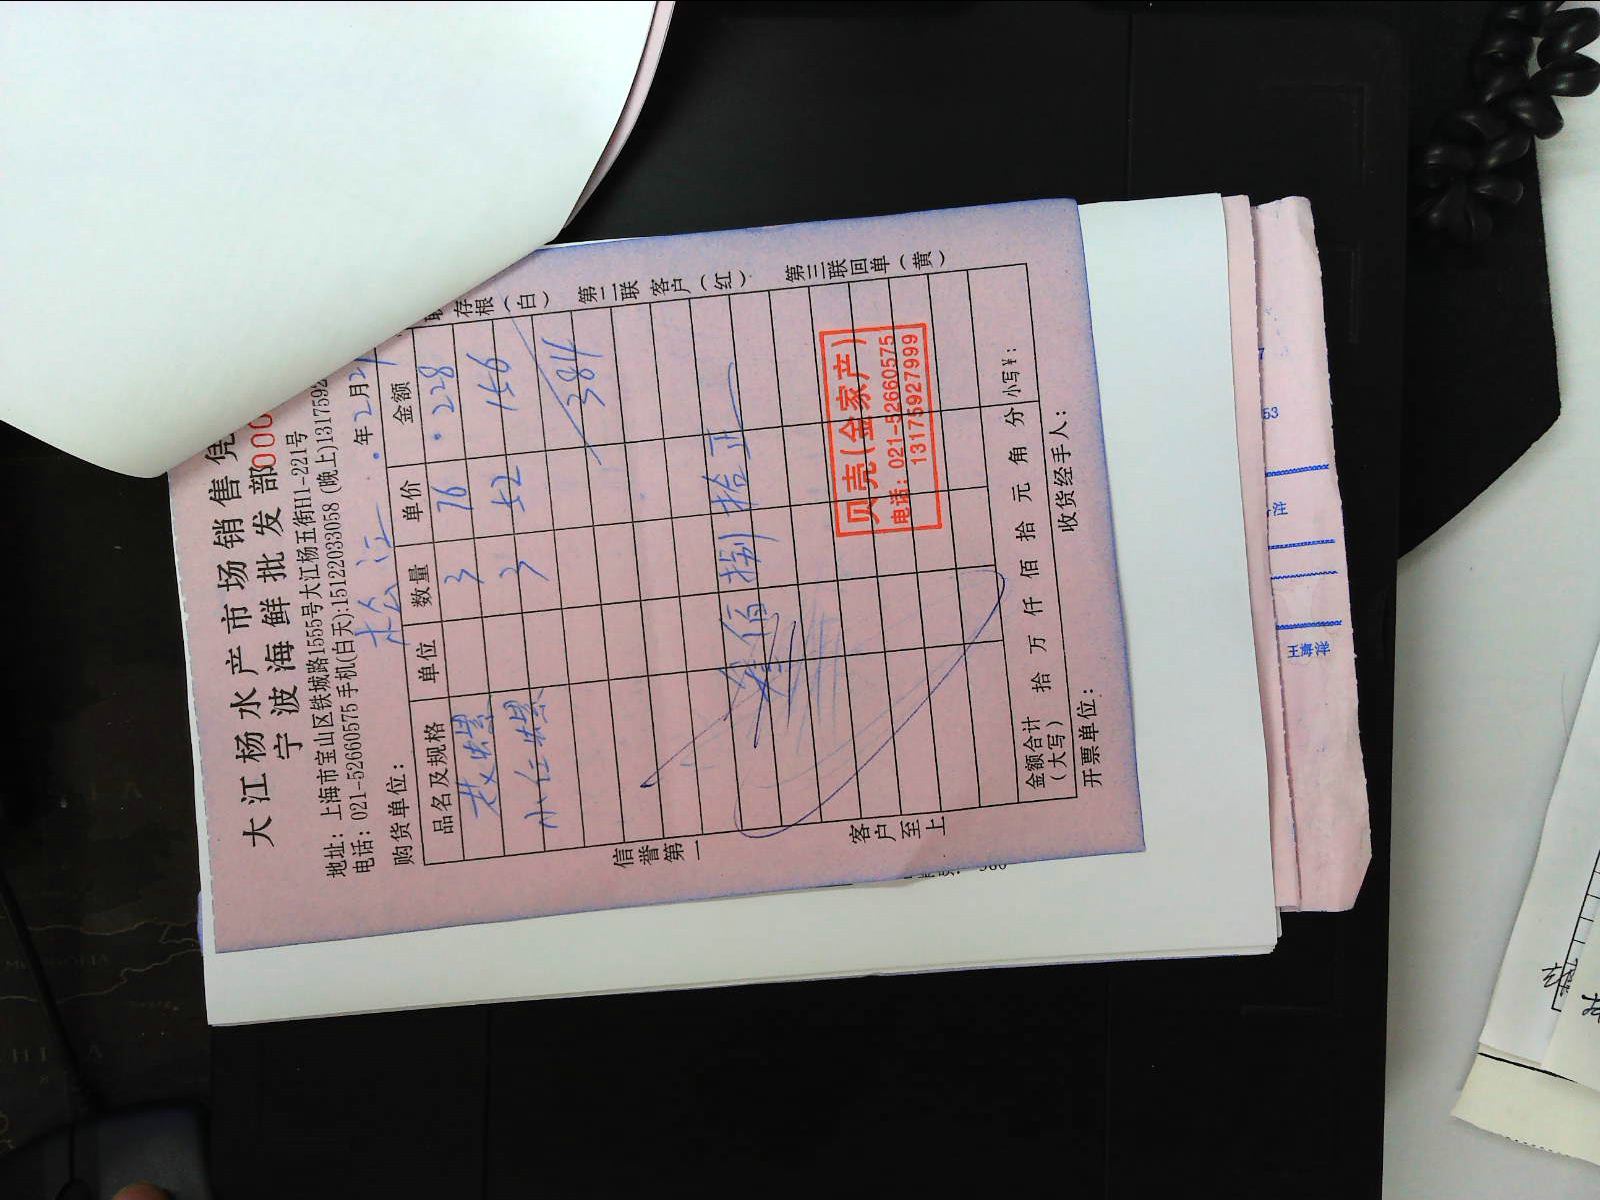 大江杨水产市场销售凭
宁波海鲜批发部 000
地址：上海市宝山区铁城路1555号大江杨五街H1-221号
电话：021-52660575 手机(白天):15122033058 (晚上)1317592
购货单位： 松江 年 2 月 2
品名及规格 单位 数量 单价 金额
3 76 228
小 3 52 156
384
佰捌拾 正
贝壳(金家产)
电话：021-52660575
13175927999
金额合计（大写） 拾 万 仟 佰 拾 元 角 分 小写¥：
开票单位： 收货经手人：
信誉第一
客户至上
存根（白）
第二联 客户（红）
第三联 回单（黄）
53